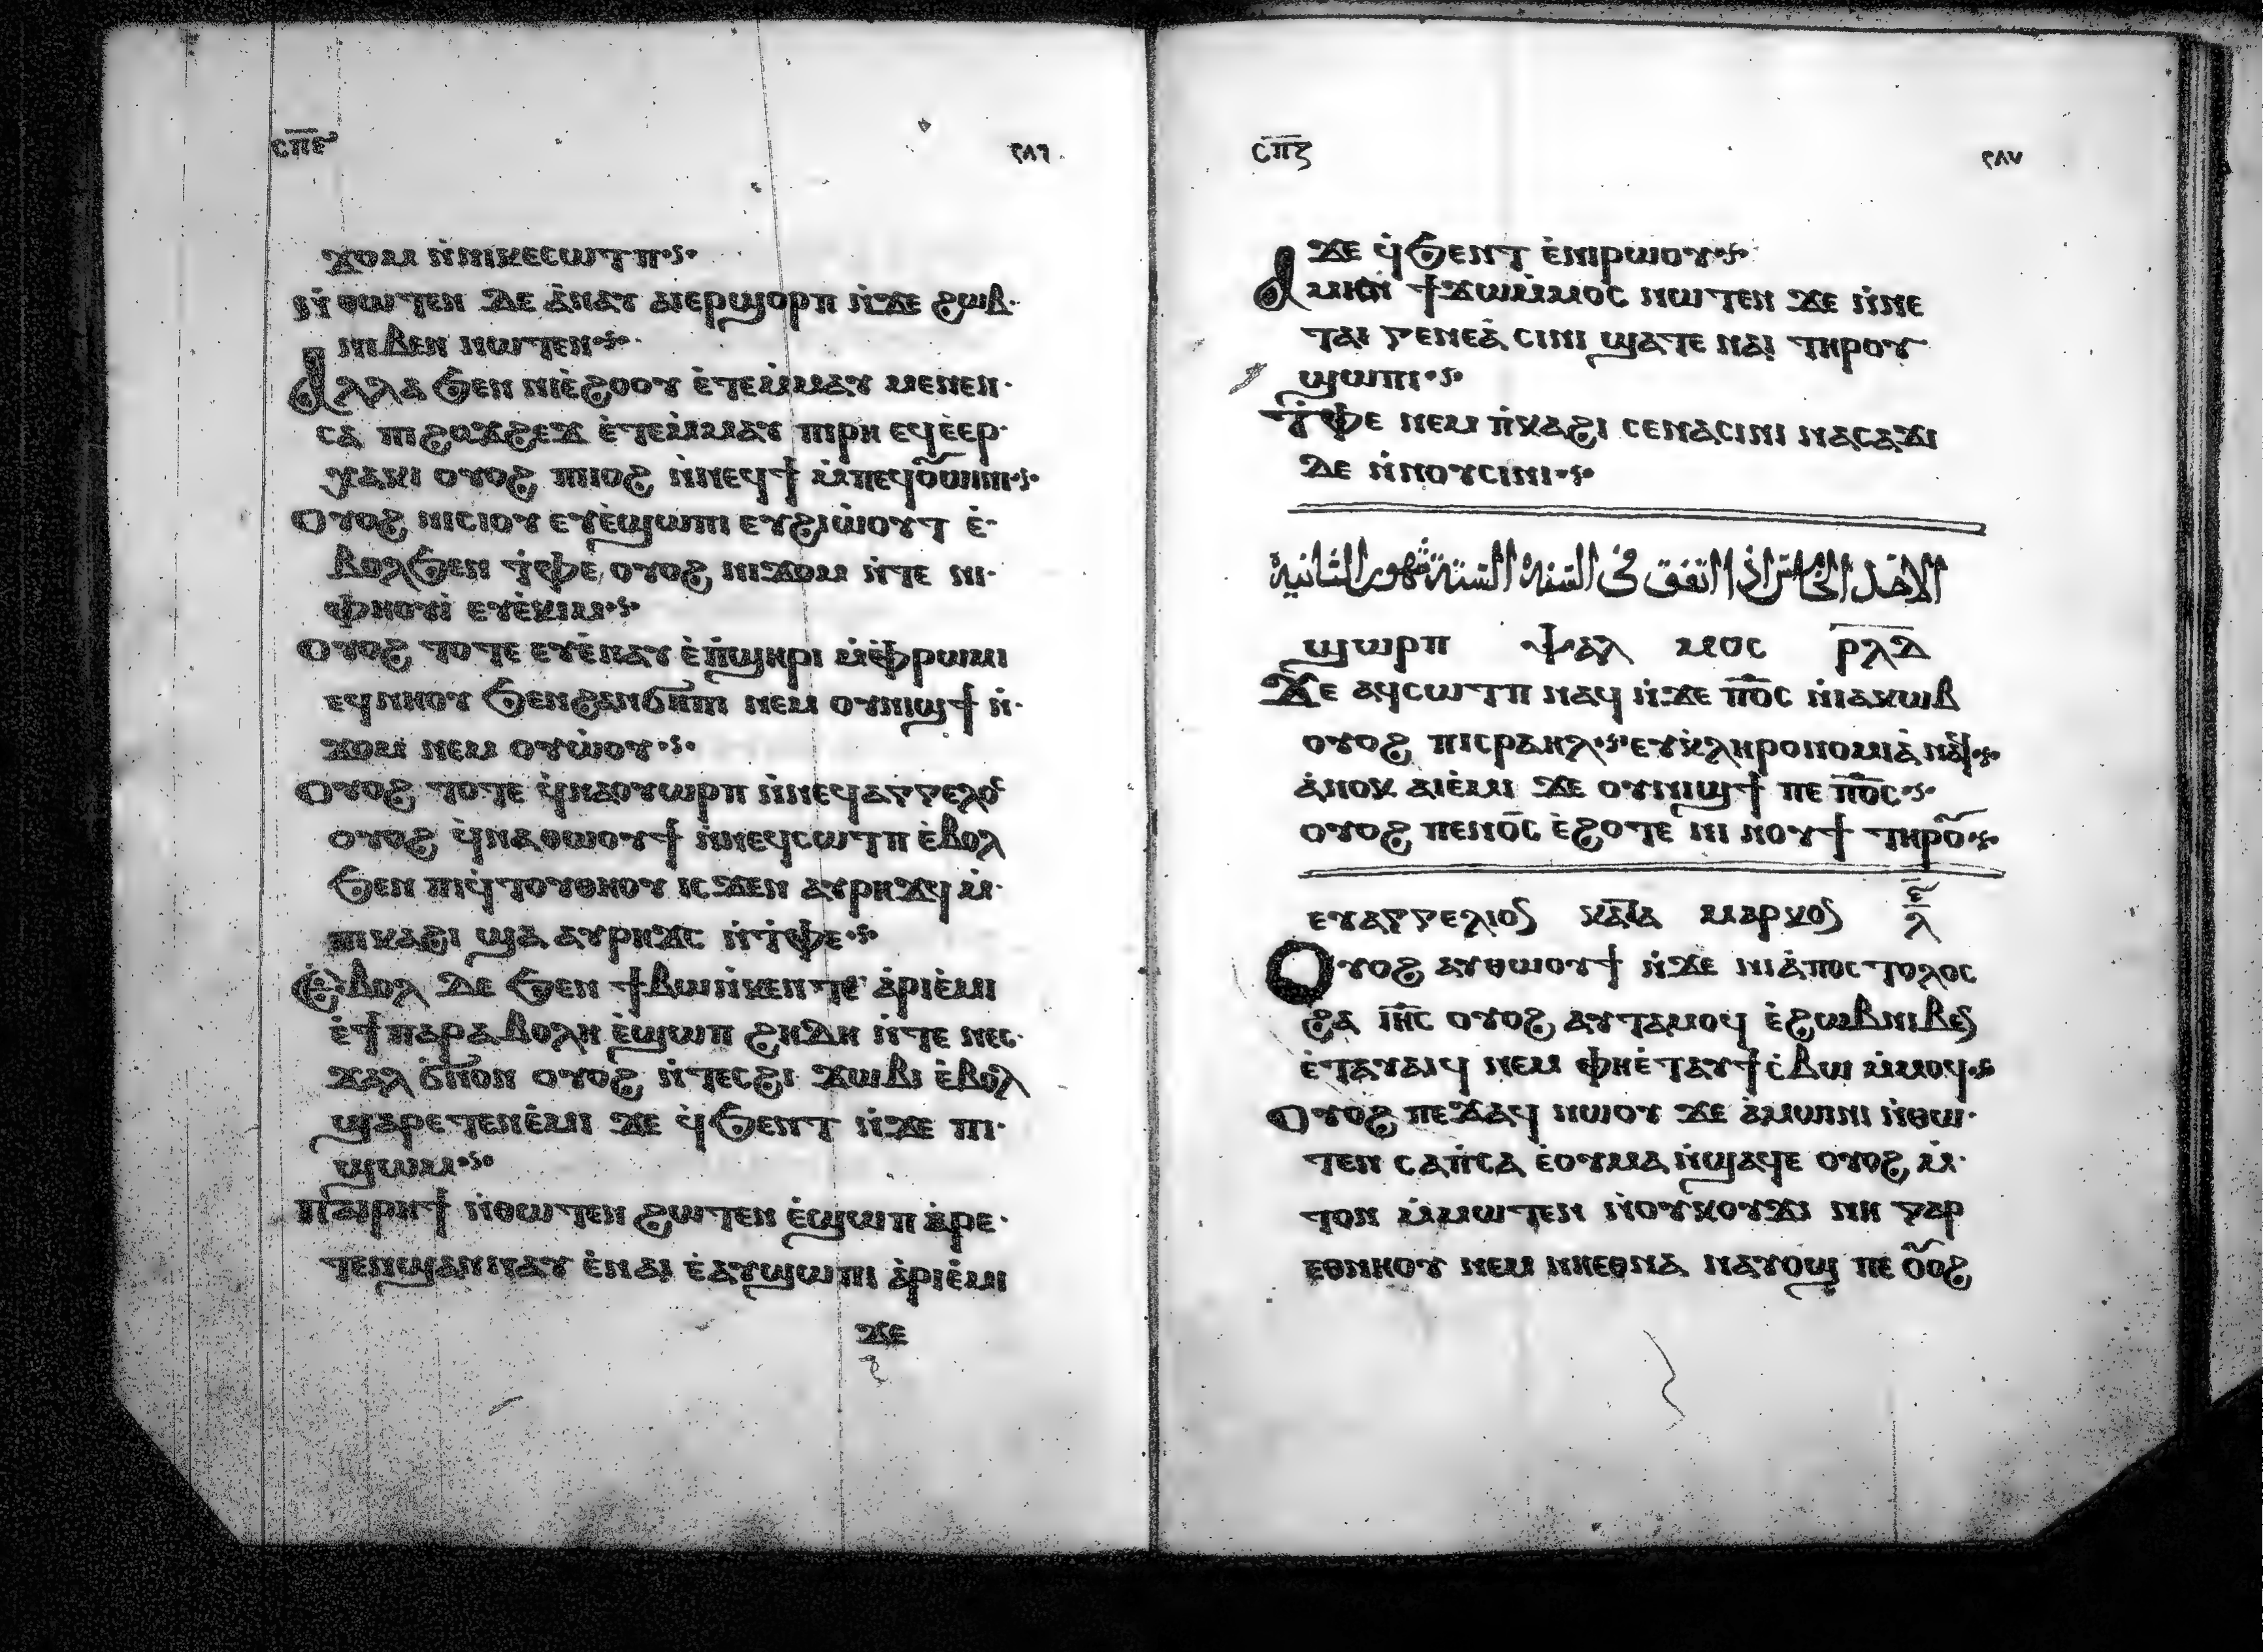 ⲥⲡⲉ ٢٨٦
ϫⲟⲙ ⲛ̀ⲛⲓⲕⲉⲥⲱⲧⲡ
ⲛ̀ⲑⲱⲧⲉⲛ ⲇⲉ ⲁ̀ⲛⲁⲩ ⲁⲓⲉⲣϣⲟⲣⲡ ⲛ̀ϫⲉ ϩⲱⲃ
ⲛⲓⲃⲉⲛ ⲛⲱⲧⲉⲛ
Ⲁⲗⲗⲁ ϧⲉⲛ ⲛⲓⲉ̀ϩⲟⲟⲩ ⲉ̀ⲧⲉⲙ̀ⲙⲁⲩ ⲙⲉⲛⲉⲛ
ⲥⲁ ⲡⲓϩⲟϫϩⲉϫ ⲉ̀ⲧⲉⲙ̀ⲙⲁⲩ ⲡⲓⲣⲏ ⲉϥⲉ̀ⲉⲣ
ⲭⲁⲕⲓ ⲟⲩⲟϩ ⲡⲓⲟϩ ⲛ̀ⲛⲉϥϯ ⲙ̀ⲡⲉϥⲟⲩⲱⲓⲛⲓ
Ⲟⲩⲟϩ ⲛⲓⲥⲓⲟⲩ ⲉⲩⲉ̀ϣⲱⲡⲓ ⲉⲩϩⲓⲱ̀ⲟⲩⲧ ⲉ̀
ⲃⲟⲗϧⲉⲛ ⲧ̀ⲫⲉ ⲟⲩⲟϩ ⲛⲓϫⲟⲙ ⲛ̀ⲧⲉ ⲛⲓ
ⲫⲏⲟⲩⲓ̀ ⲉⲩⲉ̀ⲕⲓⲙ
Ⲟⲩⲟϩ ⲧⲟⲧⲉ ⲉⲩⲉ̀ⲛⲁⲩ ⲉ̀ⲡ̀ϣⲏⲣⲓ ⲙ̀ⲫ̀ⲣⲱⲙⲓ
ⲉϥⲛⲏⲟⲩ ϧⲉⲛϩⲁⲛϭⲏⲡⲓ ⲛⲉⲙ ⲟⲩⲛⲓϣϯ ⲛ̀
ϫⲟⲙ ⲛⲉⲙ ⲟⲩⲱ̀ⲟⲩ
Ⲟⲩⲟϩ ⲧⲟⲧⲉ ϥ̀ⲛⲁⲟⲩⲱⲣⲡ ⲛ̀ⲛⲉϥⲁⲅⲅⲉⲗⲟⲥ
ⲟⲩⲟϩ ϥ̀ⲛⲁⲑⲱⲟⲩϯ ⲛ̀ⲛⲉϥⲥⲱⲧⲡ ⲉ̀ⲃⲟⲗ
ϧⲉⲛ ⲡⲓϥ̀ⲧⲟⲩⲑⲏⲟⲩ ⲓⲥϫⲉⲛ ⲁⲩⲣⲏϫϥ ⲙ̀
ⲡⲕⲁϩⲓ ϣⲁ ⲁⲩⲣⲏϫⲥ ⲛ̀ⲧ̀ⲫⲉ
Ⲉ̀ⲃⲟⲗ ⲇⲉ ϧⲉⲛ ϯⲃⲱⲛ̀ⲕⲉⲛⲧⲉ ⲁ̀ⲣⲓⲉ̀ⲙⲓ
ⲉ̀ϯⲡⲁⲣⲁⲃⲟⲗⲏ ⲉ̀ϣⲱⲡ ϩⲏⲇⲏ ⲛ̀ⲧⲉ ⲛⲉⲥ
ϫⲁⲗ ϭⲛⲟⲛ ⲟⲩⲟϩ ⲛ̀ⲧⲉⲥϩⲓ ϫⲱⲃⲓ ⲉ̀ⲃⲟⲗ
ϣⲁⲣⲉⲧⲉⲛⲉ̀ⲙⲓ ϫⲉ ϥ̀ϧⲉⲛⲧ ⲛ̀ϫⲉ ⲡⲓ
ϣⲱⲙ
Ⲡⲁⲓⲣⲏϯ ⲛ̀ⲑⲱⲧⲉⲛ ϩⲱⲧⲉⲛ ⲉ̀ϣⲱⲡ ⲁ̀ⲣⲉ
ⲧⲉⲛϣⲁⲛⲛⲁⲩ ⲉ̀ⲛⲁⲓ ⲉ̀ⲁⲩϣⲱⲡⲓ ⲁ̀ⲣⲓⲉ̀ⲙⲓ
ϫⲉ
ⲥⲡⲍ ٢٨٧
ϫⲉ ϥ̀ϧⲉⲛⲧ ⲉ̀ⲛⲓⲣⲱⲟⲩ
Ⲁⲙⲏⲛ ϯϫⲱⲙ̀ⲙⲟⲥ ⲛⲱⲧⲉⲛ ϫⲉ ⲛ̀ⲛⲉ
ⲧⲁⲓ ⲅⲉⲛⲉⲁ̀ ⲥⲓⲛⲓ ϣⲁⲧⲉ ⲛⲁⲓ ⲧⲏⲣⲟⲩ
ϣⲱⲡⲓ
Ⲧ̀ⲫⲉ ⲛⲉⲙ ⲡ̀ⲕⲁϩⲓ ⲥⲉⲛⲁⲥⲓⲛⲓ ⲛⲁⲥⲁϫⲓ
ⲇⲉ ⲛ̀ⲛⲟⲩⲥⲓⲛⲓ
الاحد الخامس اذا اتفق فى السنة الستة شهور الثانية
ϣⲱⲣⲡ ⲯⲁⲗ ⲙⲟⲥ ⲣⲗⲇ
Ϫⲉ ⲁϥⲥⲱⲧⲡ ⲛⲁϥ ⲛ̀ϫⲉ ⲡ⳪ ⲛ̀ⲓⲁⲕⲱⲃ
ⲟⲩⲟϩ ⲡⲓⲥⲣⲁⲏⲗ ⲉⲩⲕ̀ⲗⲏⲣⲟⲛⲟⲙⲓⲁ̀ ⲛⲁϥ
ⲁ̀ⲛⲟⲕ ⲁⲓⲉ̀ⲙⲓ ϫⲉ ⲟⲩⲛⲓϣϯ ⲡⲉ ⲡ⳪
ⲟⲩⲟϩ ⲡⲉⲛⲟ̅ⲥ ⲉ̀ϩⲟⲧⲉ ⲛⲓ ⲛⲟⲩϯ ⲧⲏⲣⲟⲩ
ⲉⲩⲁⲅⲅⲉⲗⲓⲟⲛ ⲕⲁⲧⲁ ⲙⲁⲣⲕⲟⲛ ⲋ ⲗ
Ⲟⲩⲟϩ ⲁⲩⲑⲱⲟⲩϯ ⲛ̀ϫⲉ ⲛⲓⲁ̀ⲡⲟⲥⲧⲟⲗⲟⲥ
ϩⲁ ⲓⲏ̅ⲥ ⲟⲩⲟϩ ⲁⲩⲧⲁⲙⲟϥ ⲉ̀ϩⲱⲃⲛⲓⲃⲉⲛ
ⲉ̀ⲧⲁⲩⲁⲓϥ ⲛⲉⲙ ⲫⲏⲉ̀ⲧⲁⲩϯⲥ̀ⲃⲱ ⲙ̀ⲙⲟϥ
Ⲟⲩⲟϩ ⲡⲉϫⲁϥ ⲛⲱⲟⲩ ϫⲉ ⲁ̀ⲙⲱⲓⲛⲓ ⲛ̀ⲑⲱ
ⲧⲉⲛ ⲥⲁⲡ̀ⲥⲁ ⲉ̀ⲟⲩⲙⲁ ⲛ̀ϣⲁϥⲉ ⲟⲩⲟϩ ⲙ̀
ⲧⲟⲛ ⲙ̀ⲙⲱⲧⲉⲛ ⲛ̀ⲟⲩⲕⲟⲩϫⲓ ⲛⲏ ⲅⲁⲣ
ⲉⲑⲛⲏⲟⲩ ⲛⲉⲙ ⲛⲏⲉⲑⲛⲁ ⲛⲁⲩⲟϣ ⲡⲉ ⲟⲩⲟϩ